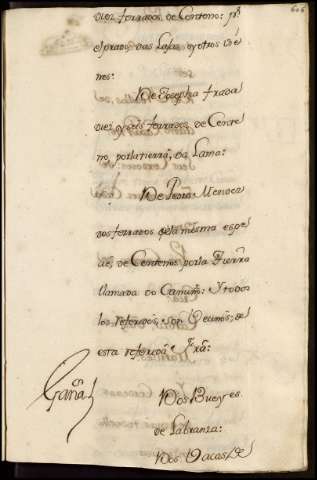 606
diez ferrados de Centeno: pr.
el prado das Laxas y otros vie
nes:
De Josepha trada
diez y seis ferrados de Cente
no, por la tierra, da Lama:
De Pedro Mendez
dos ferrados de la misma espe
cie, de Centeno por la Tierra
llamada do Camiño: Y todos
los referidos, son Vecinos, de
esta referida Frã:
Ganã
Dos Bueyes
de Labranza:
Dos Vacas de